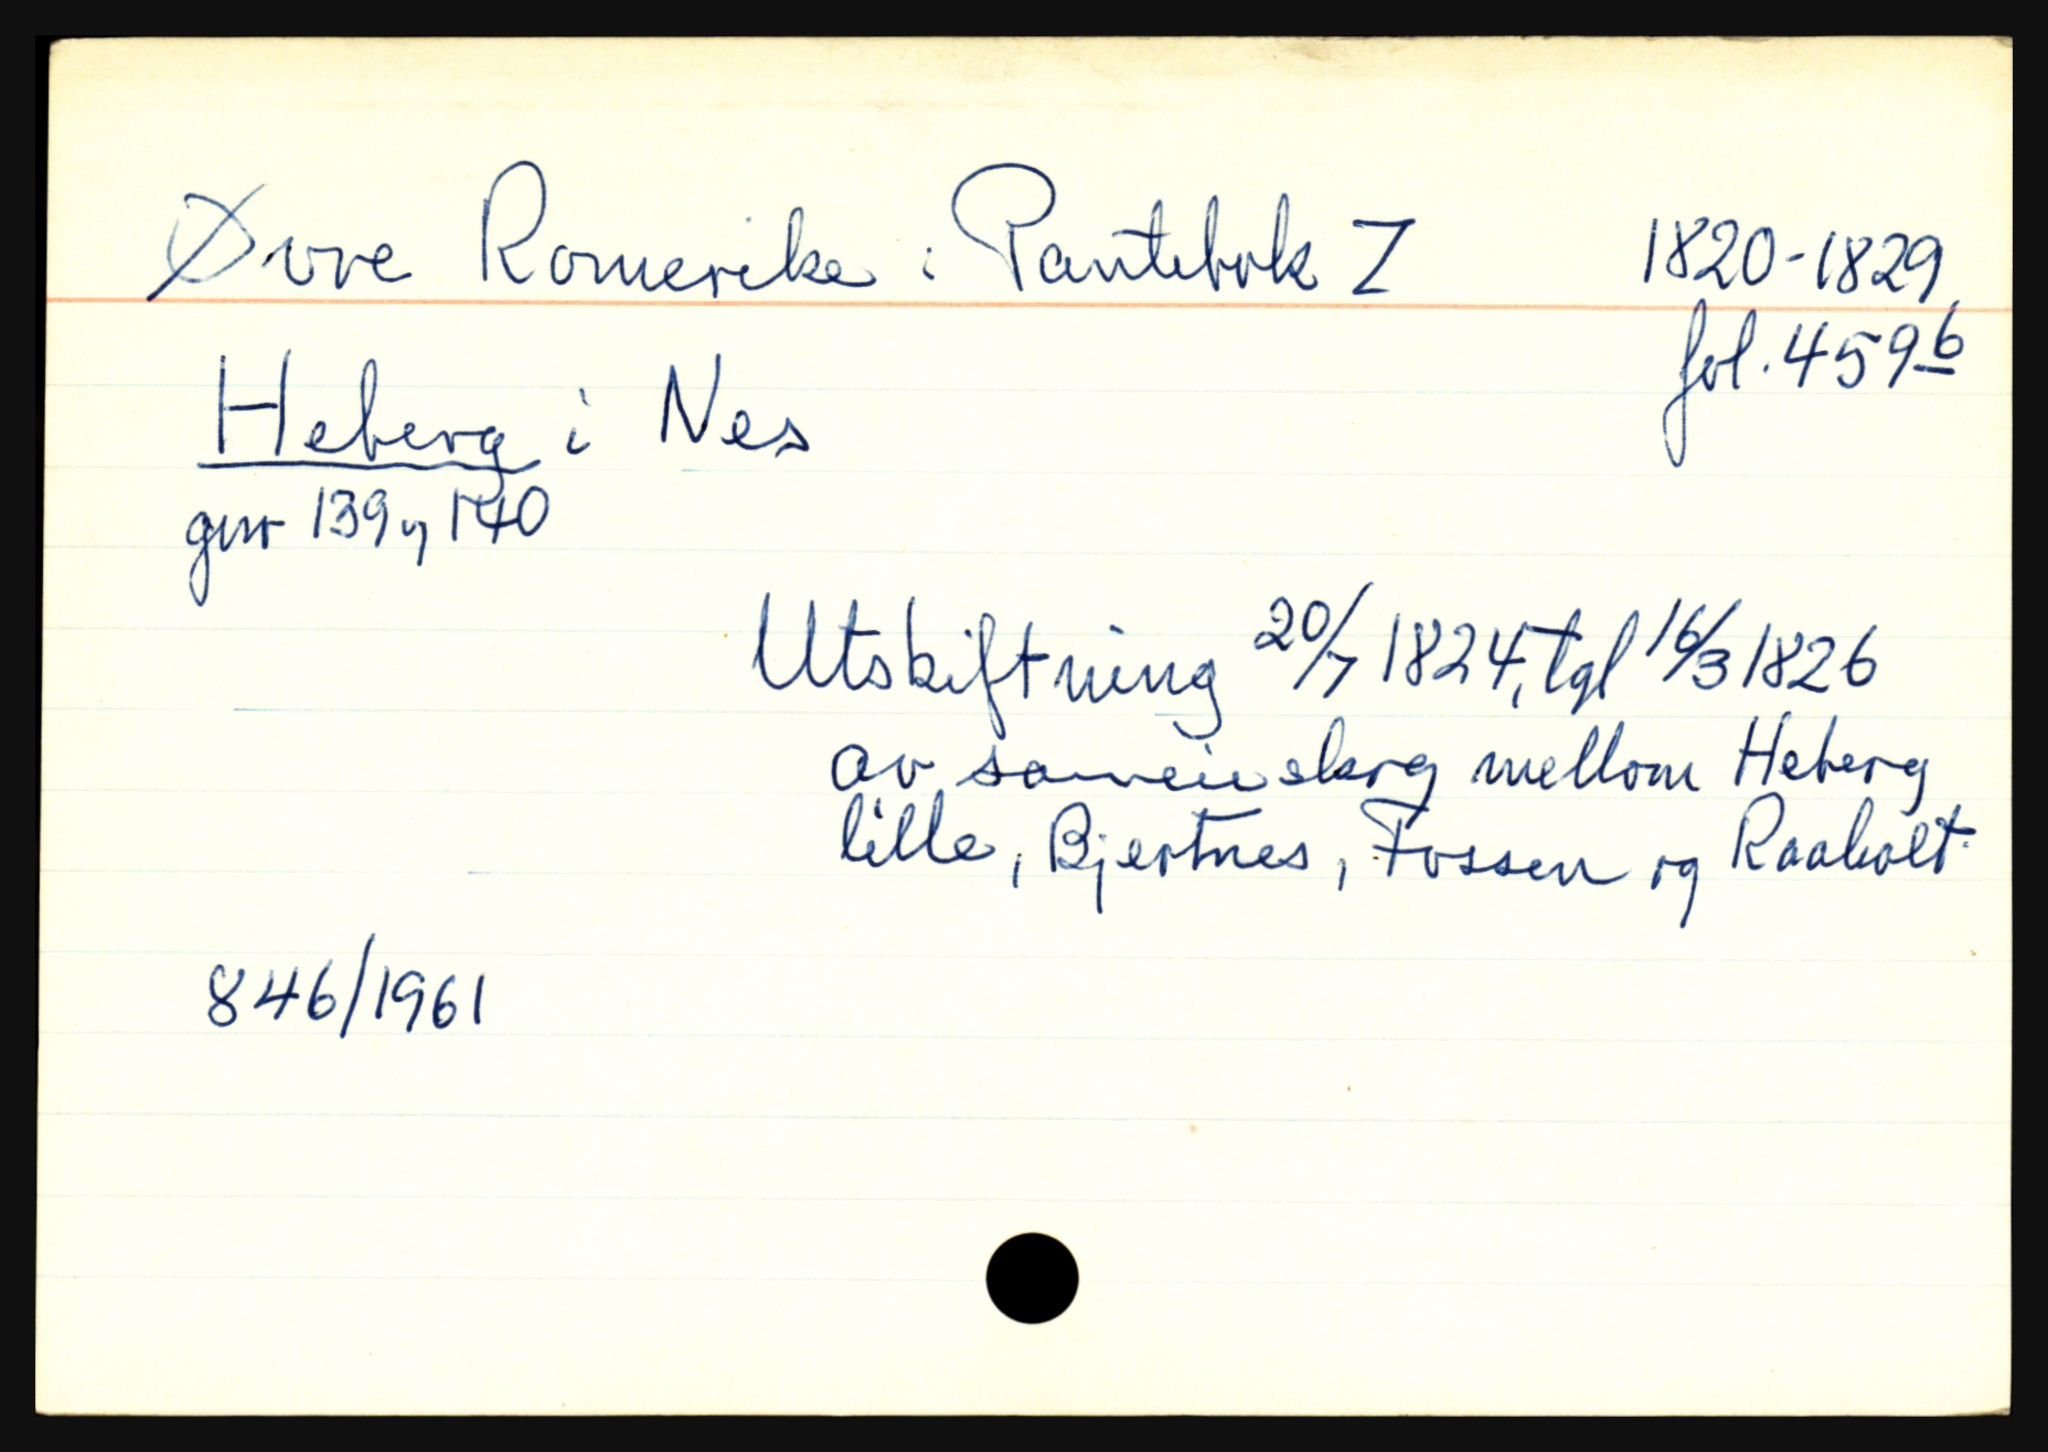 Øvre Romerike : Pantebok I 1820-1829,
fol. 459b
Heberg i Nes
gnr 139 og 140
Utskiftning 20/7 1824, tgl 16/3 1826
av sameieskog mellom Heberg
lille, Bjertnes, Fossen og Raaholt.
846/1961